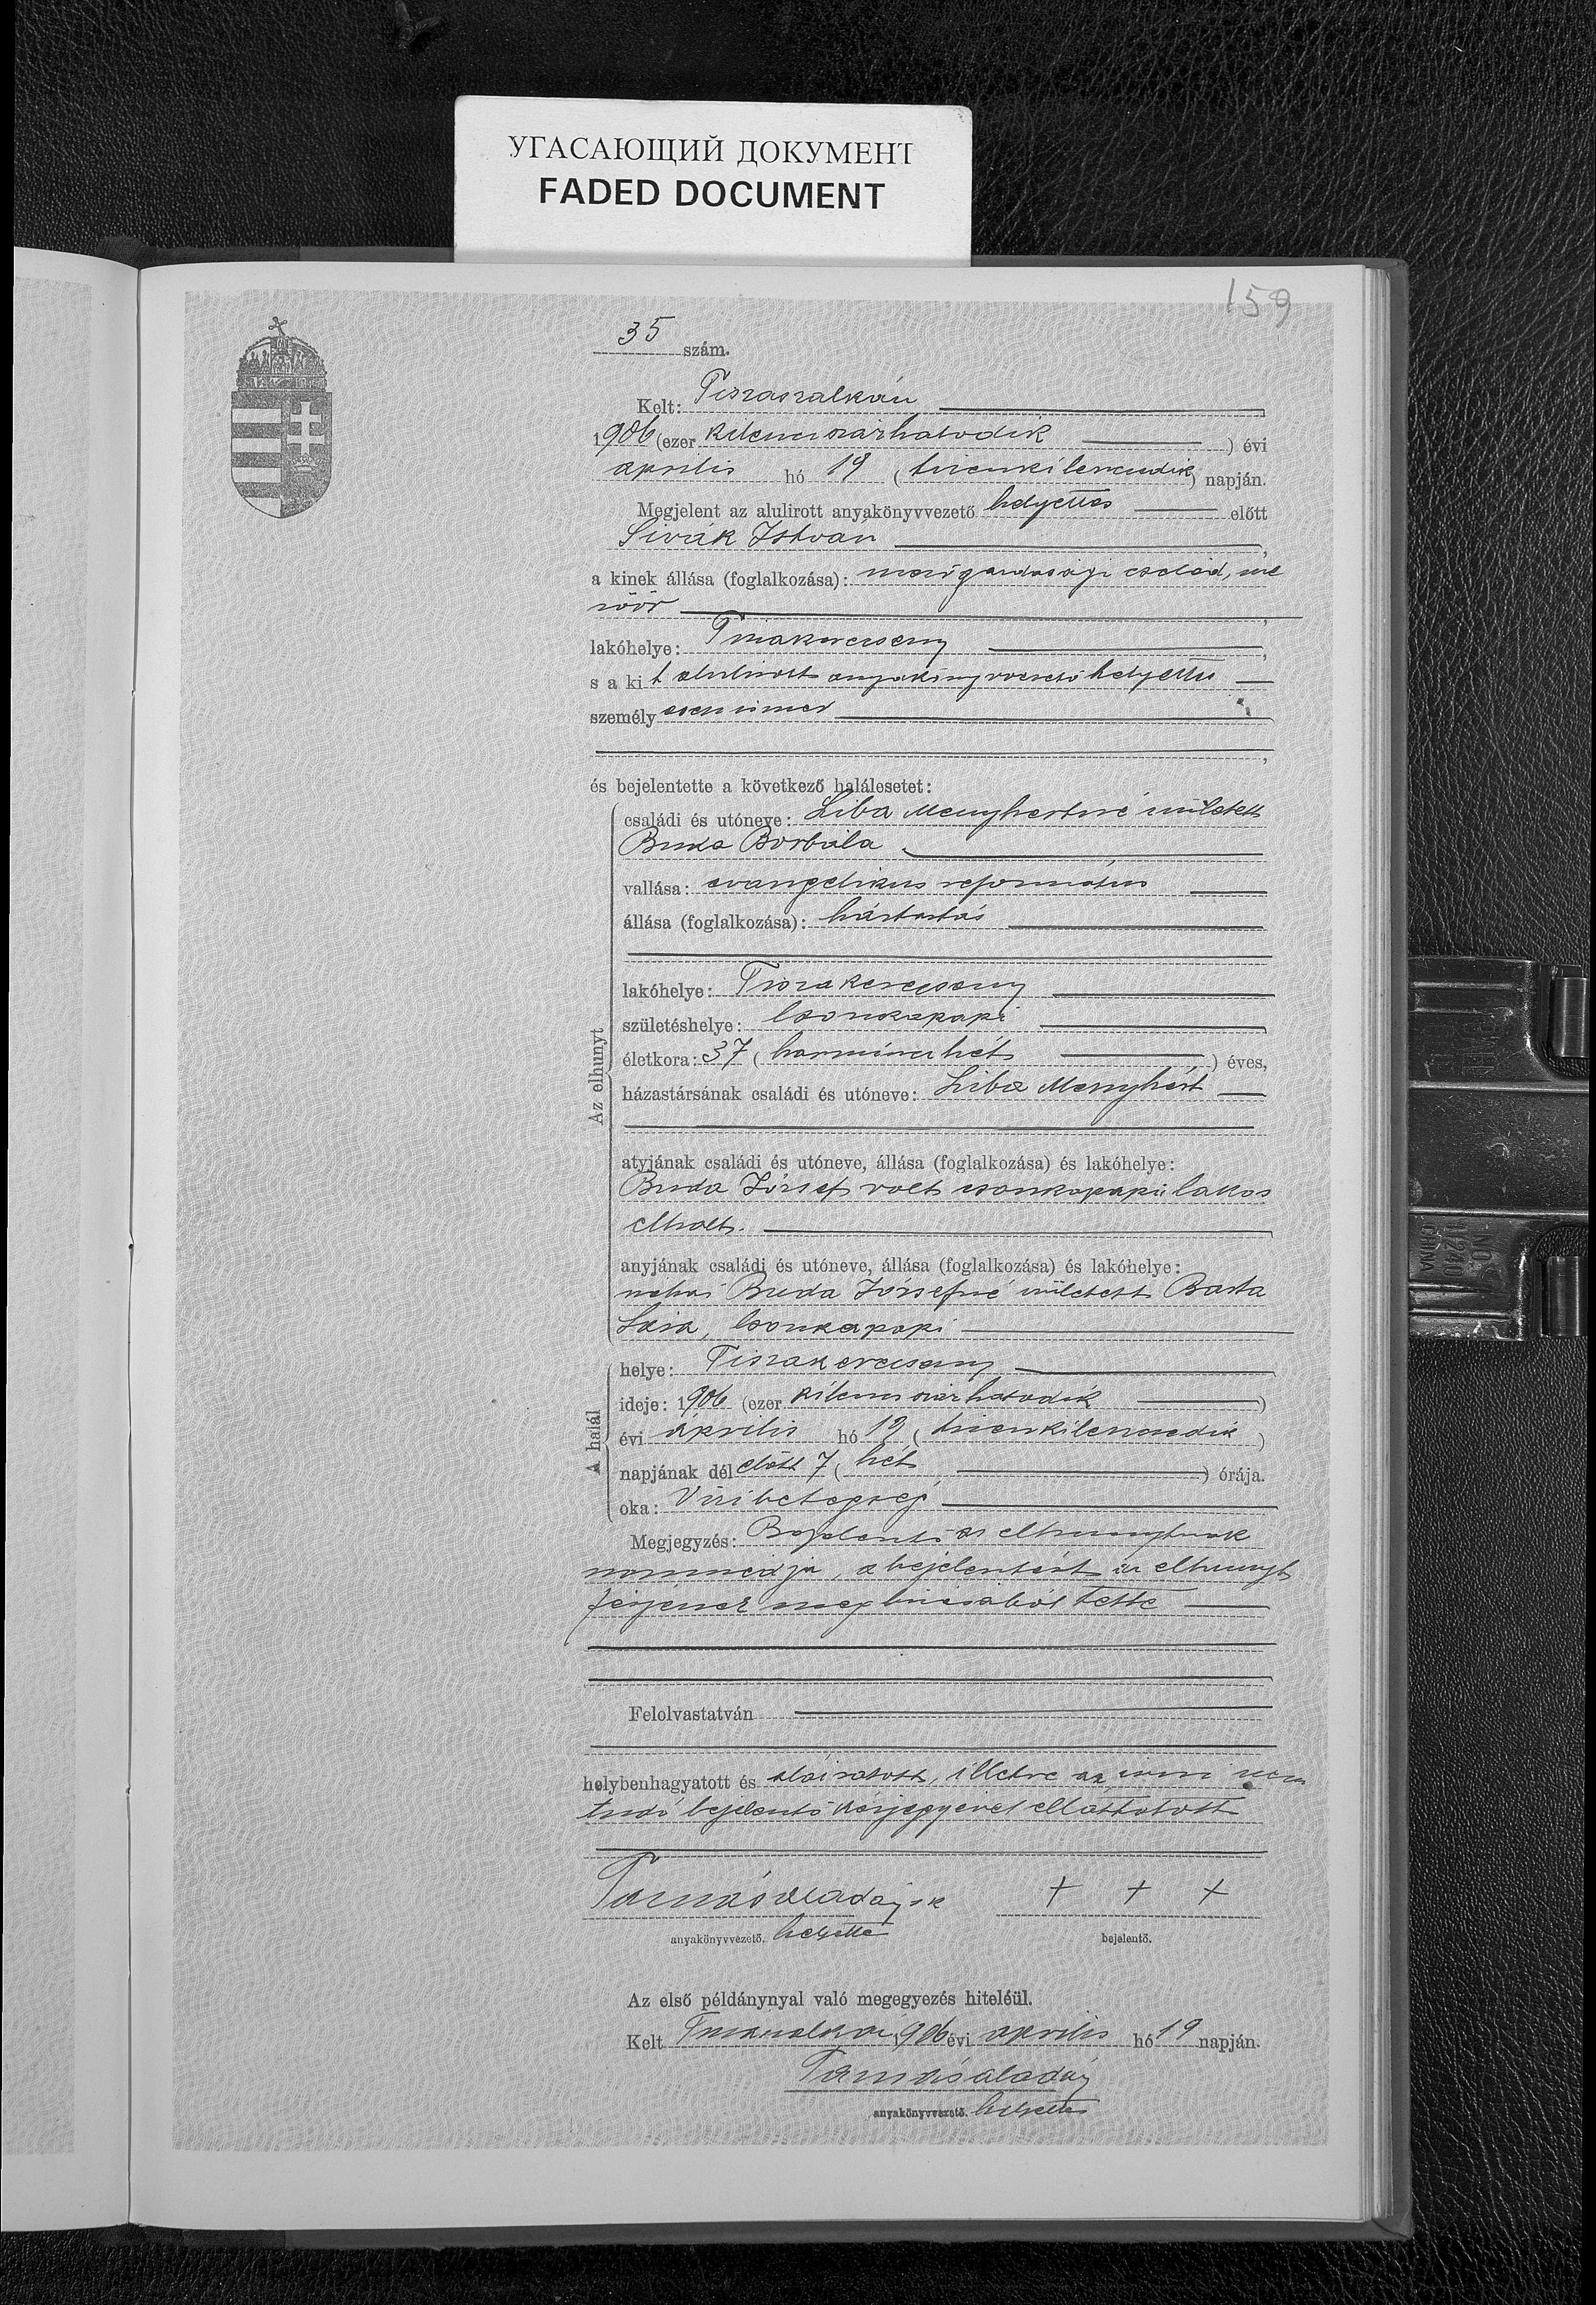 УГАСАЮЩИЙ ДОКУМЕНТ
FADED DOCUMENT
159
35 szám.
Kelt: Tiszaszalkán
1906 (ezer kilenczszázhatodik ) évi
április hó 19 ( tizenkilenczedik ) napján.
Megjelent az alulirott anyakönyvvezető helyettes előtt
Sivák István ,
a kinek állása (foglalkozása): mezőgazdasági cseléd,
lakóhelye: Tiszakerecseny ,
s a kit alulirott anyakönyvvezető helyettes
személyesen ismer
,
és bejelentette a következő halálesetet:
Az elhunyt
családi és utóneve: Liba Menyhértné született
Buda Borbála
vallása: evangelikus református
állása (foglalkozása): háztartás
lakóhelye: Tiszakerecseny
születéshelye: Csonkapapi
életkora: 37 ( harminczhét ) éves,
házastársának családi és utóneve: Liba Menyhért
atyjának családi és utóneve, állása (foglalkozása) és lakóhelye:
Buda József volt csonkapapii lakos
elholt.
anyjának családi és utóneve, állása (foglalkozása) és lakóhelye:
néhai Buda Józsefné született Barta
Csonkapapi
A halál
helye: Tiszakerecseny
ideje: 1906 (ezer kilenczszázhatodik )
évi április hó 19 ( tizenkilenczedik )
napjának délelőtt 7 ( hét ) órája.
oka: Vízibetegség
Megjegyzés: Bejelentő az elhunytnak
szomszédja, a bejelentést az elhunyt
férjének megbízásából tette
Felolvastatván
helybenhagyatott és aláiratott, illetve az irni nem
tudó bejelentő kézjegyével elláttatott
Tamás Aladár sk + + +
anyakönyvvezető. helyettes bejelentő.
Az első példánynyal való megegyezés hiteléül.
Kelt Tiszaszalkán 1906 évi április hó 19 napján.
Tamás Aladár
anyakönyvvezető. helyettes